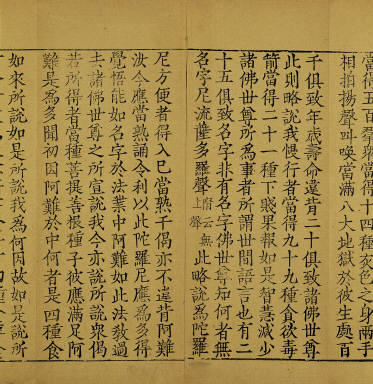 當得五百聲當得四十種灰色之身兩手
相拍揚聲叫喚當滿八大地獄於彼生處百
千俱致年歲壽命違背二十俱致諸佛世尊
此則略說我慢行者當得九十九種食欲毒
箭當得二十一種下賤果報如是智慧減少
諸佛世尊所為事者所謂世間語言也有二
十五俱致名字非有名字佛世尊知何者無
名字尼流薩多羅聲隋云無上聲此略說為陀羅
尼方便者得入已當熟千偈亦不違背阿難
汝今應當熟誦令利以此陀羅尼應為多得
覺悟能如名字於法業中阿難如此法教過
去諸佛世尊之所宣說我今亦說所說眾偈
若所得者當種菩提善根種子彼應滿足阿
難是為多聞初因阿難於中何者是四種食
如來所說如是所說我為何因故如是說所